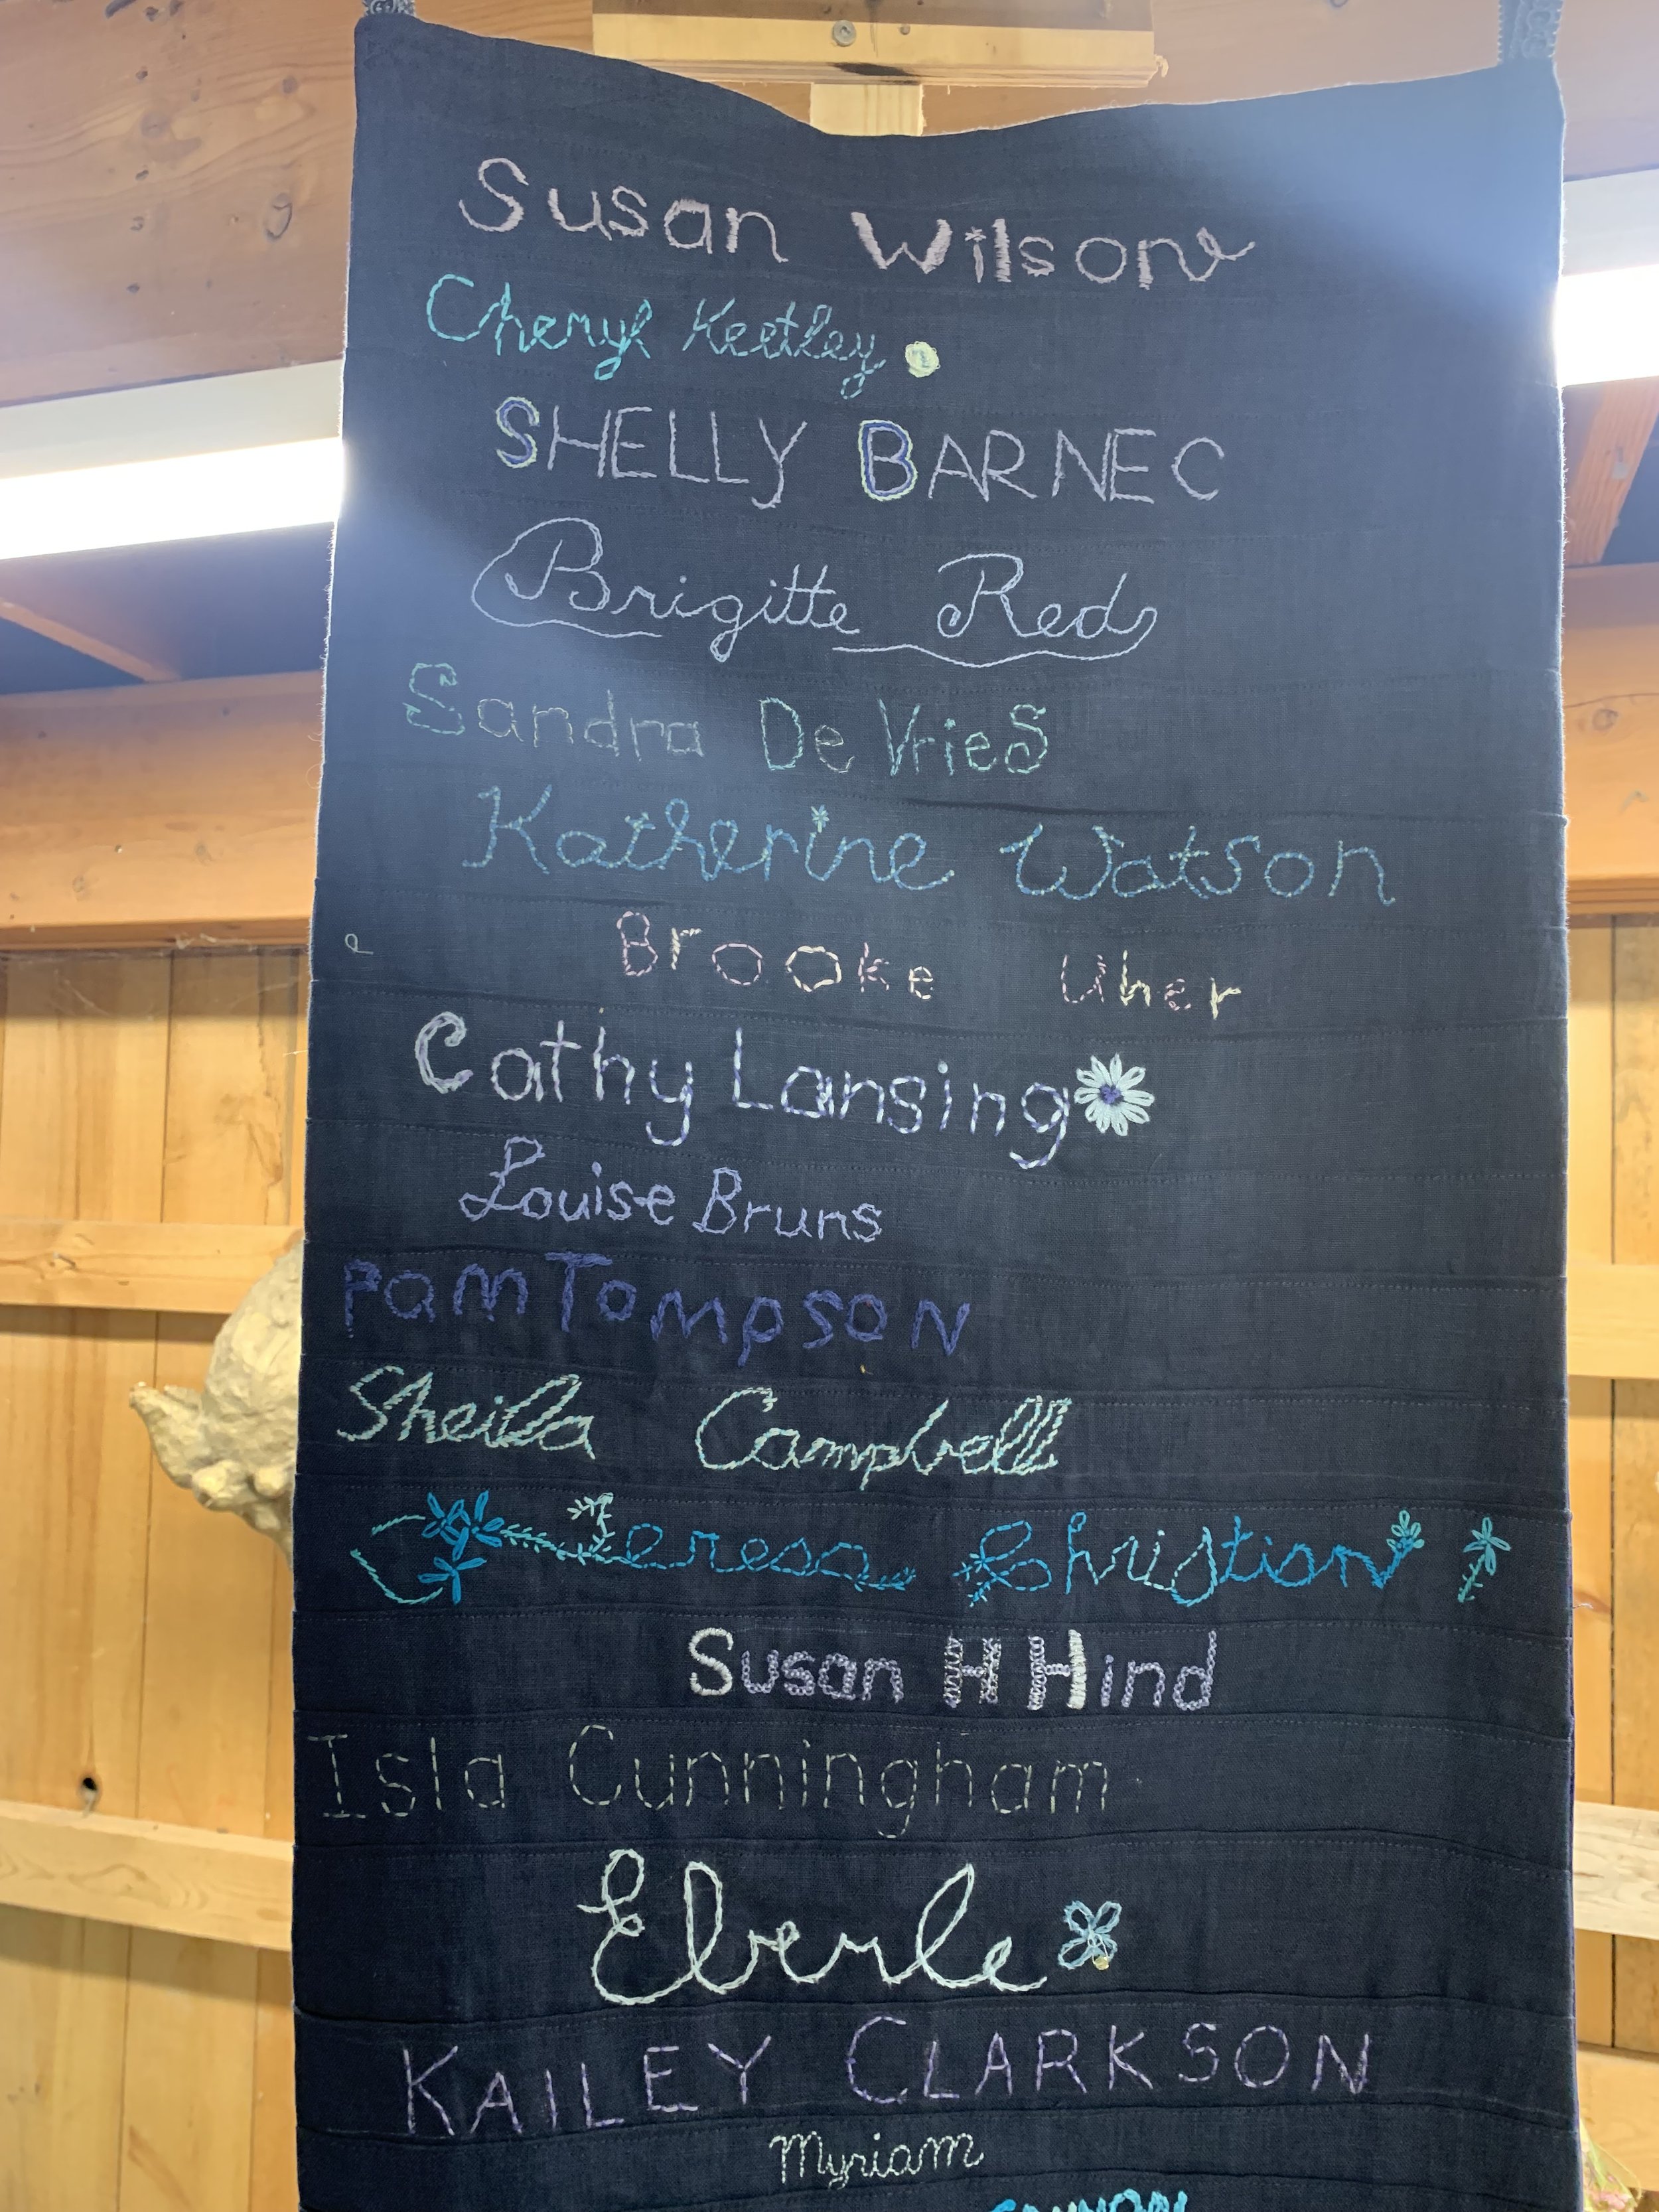 Susan Wilson
Cheryl Keetley
SHELLY BARNEC
Brigitte Red
Sandra De Vries
Katherine Watson
Brooke Uher
Cathy Lansing
Louise Bruns
Pam Tompson
Sheila Campbell
Teresa Christian
Susan H Hind
Isla Cunningham
Eberle
KAILEY CLARKSON
Myriam